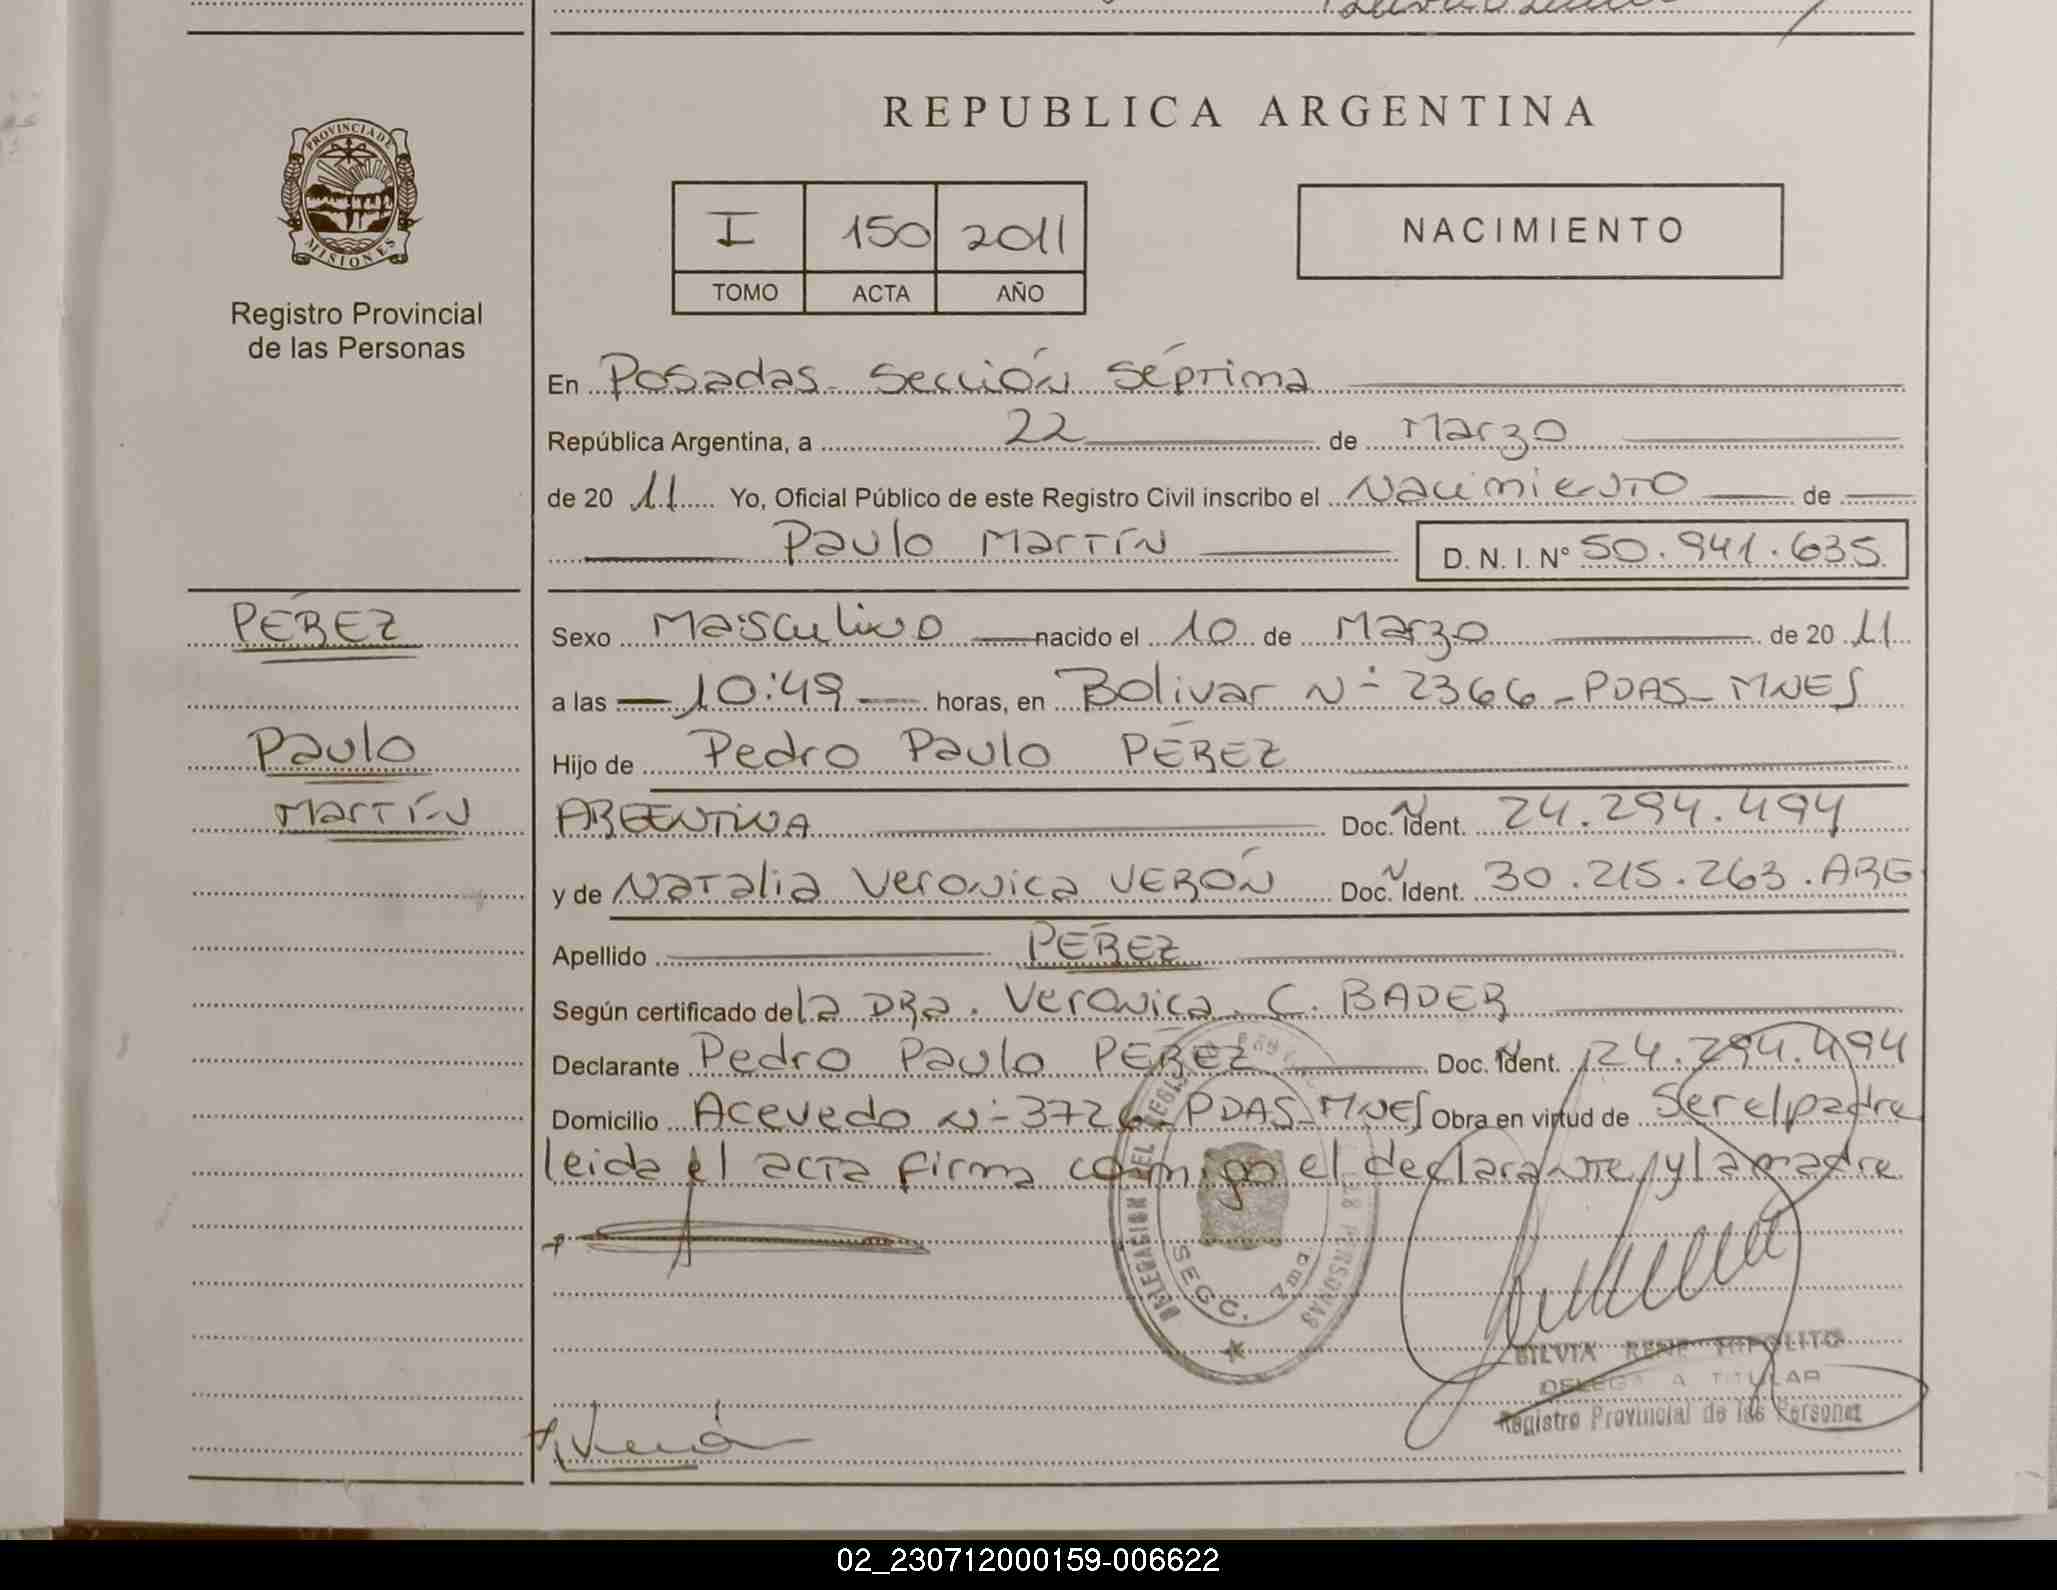 REPUBLICA ARGENTINA
PROVINCIA DE
MISIONES
Registro Provincial
de las Personas
I 150 2011
TOMO ACTA AÑO
NACIMIENTO
En Posadas Sección Séptima
República Argentina, a 22 de Marzo
de 20 11 Yo, Oficial Público de este Registro Civil inscribo el Nacimiento de
Paulo Martín D. N. I. Nº 50.941.635
PÉREZ
Paulo
Martín
Sexo Masculino nacido el 10 de Marzo de 20 11
a las 10:49 horas, en Bolivar Nº 2366 - PDAS - MNES
Hijo de Pedro Paulo PÉREZ
ARGENTINA Doc. Ident. 24.294.494
y de Natalia Veronica VERÓN Doc. Ident. 30.215.263. ARG
Apellido PÉREZ
Según certificado de la DRa. Veronica C. BADER
Declarante Pedro Paulo PÉREZ Doc. Ident. 24.294.494
Domicilio Acevedo Nº 3726 PDAS - MNES Obra en virtud de Ser el padre
leida el acta firma conmigo el declarante y la madre
DELEGACION DEL REGISTRO LAS PERSONAS
SECC. 7ma
SILVIA RENE HIPOLITO
DELEGADA TITULAR
Registro Provincial de las Personas
Verón
02_230712000159-006622